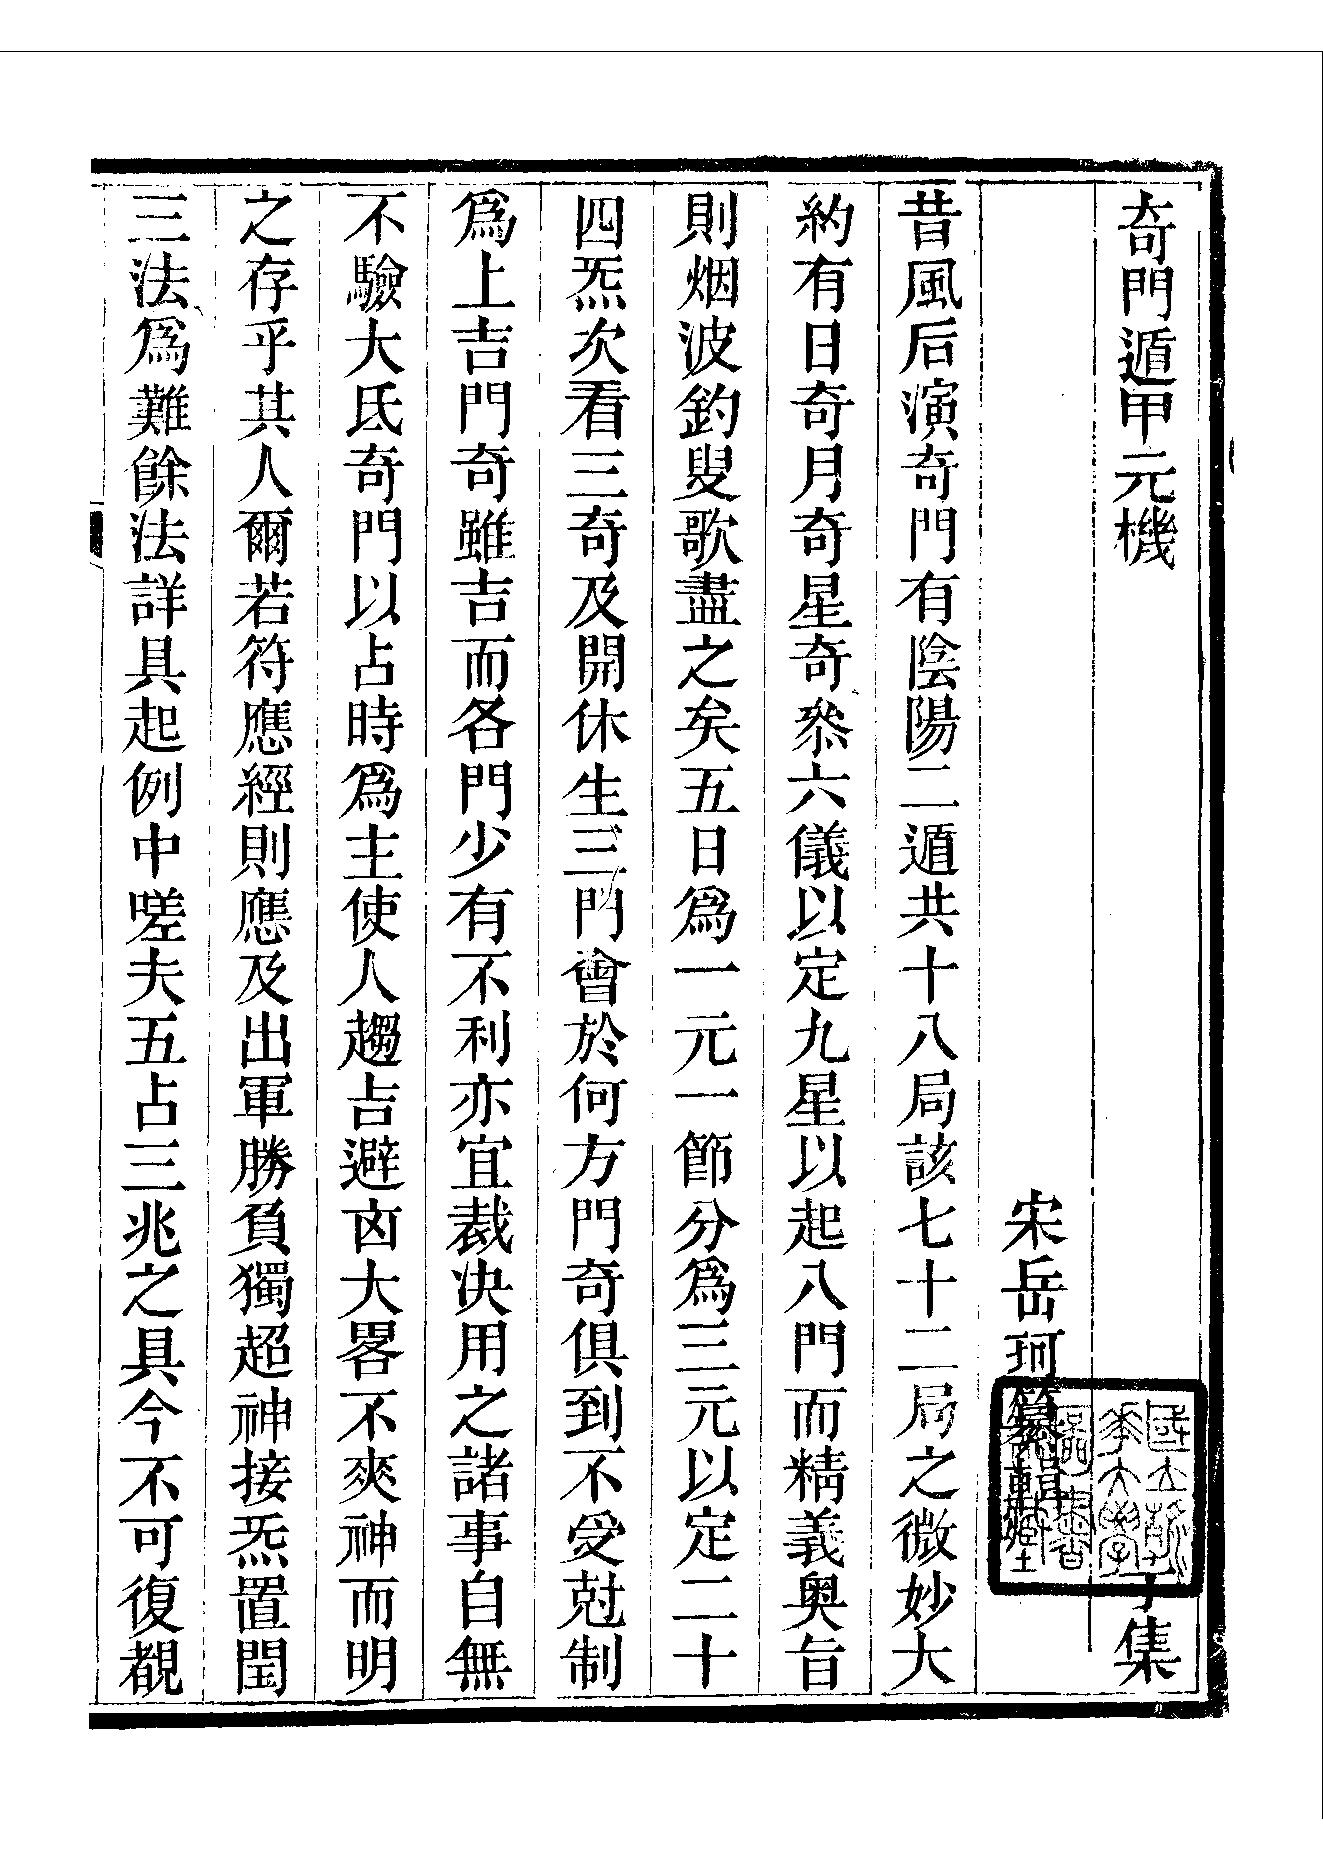 奇門遁甲元機 子集
宋岳珂纂輯
昔風后演奇門有陰陽二遁共十八局該七十二局之微妙大
約有日奇月奇星奇叅六儀以定九星以起八門而精義奥旨
則烟波釣叟歌盡之矣五日爲一元一節分爲三元以定二十
四炁次看三奇及開休生三門會於何方門奇俱到不受尅制
爲上吉門奇雖吉而各門少有不利亦宜裁决用之諸事自無
不驗大氐奇門以占時爲主使人趨吉避凶大畧不爽神而明
之存乎其人爾若符應經則應及出軍勝負獨超神接炁置閏
三法爲難餘法詳具起例中嗟夫五占三兆之具今不可復覩